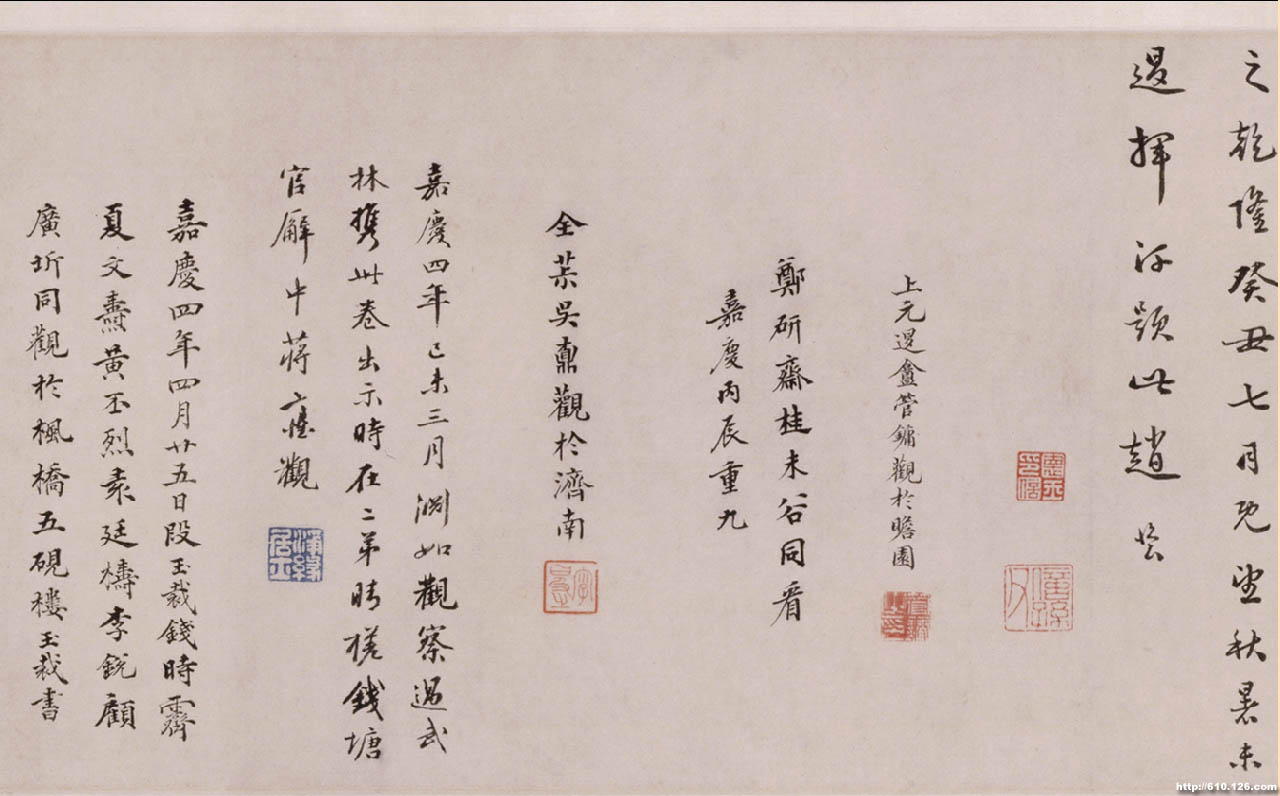 之乾隆癸丑七月既望秋暑未
退揮汗題此趙
上元退盦管鏞觀於瞻園
鄭研齋桂未谷同看
嘉慶丙辰重九
全茮吳鼒觀於濟南
嘉慶四年己未三月淵如觀察過武
林携此卷出示時在二弟時樣錢塘
官廨中蔣觀
嘉慶四年四月廿五日段玉裁錢時霽
夏文燾黃丕烈袁廷檮李銳顧
廣圻同觀於楓橋五硯樓玉裁書
http://610.126.com